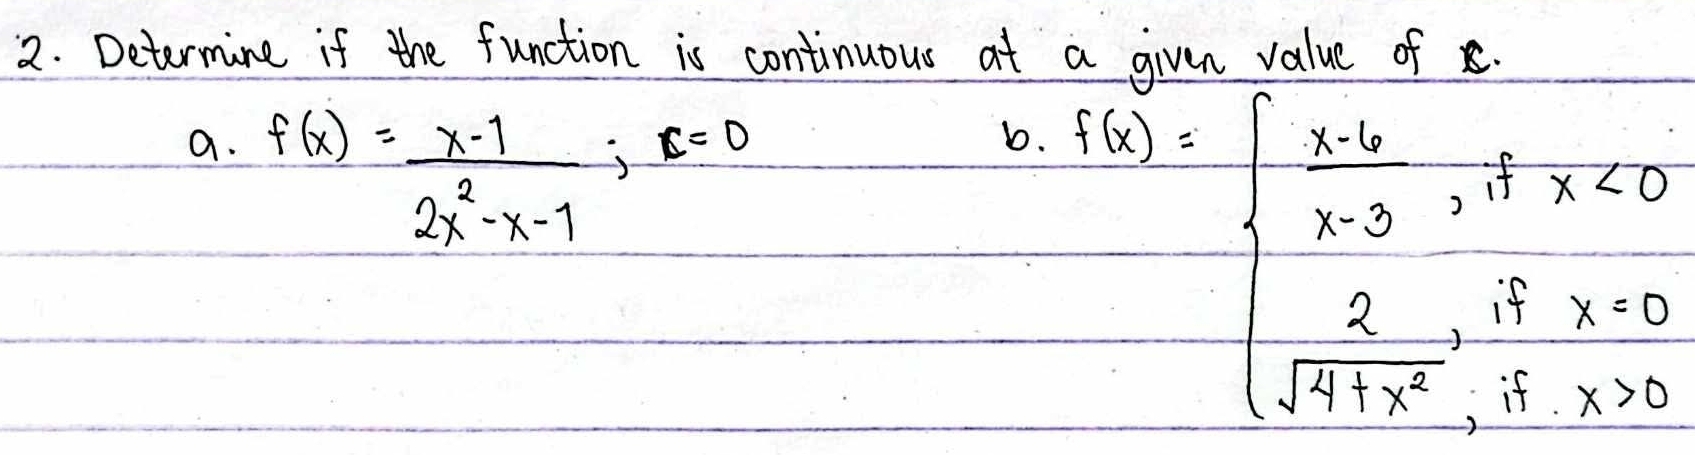 2. Determine if the function is continuous at a given value of c.
a. f(x) = x-1 / 2x²-x-1 ; c=0
b. f(x) = { x-6 / x-3 , if x<0
2 , if x=0
√4+x² ; if x>0